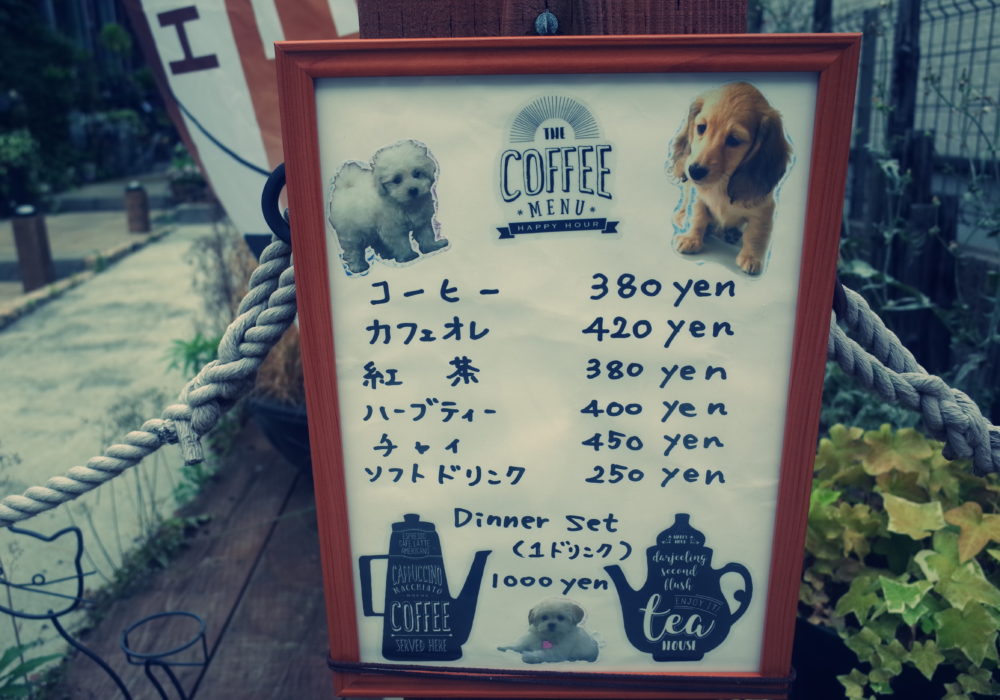 エ
THE
COFFEE
MENU
HAPPY HOUR
コーヒー 380 yen
カフェオレ 420 yen
紅 茶 380 yen
ハーブティー 400 yen
チャイ 450 yen
ソフトドリンク 250 yen
Dinner Set
(1ドリンク)
1000 yen
ESPRESSO
CAFE LATTE
AMERICANO
CAPPUCCINO
MACCHIATO
MOCHA
COFFEE
SERVED HERE
darjeeling
second
flush
ENJOY IT!
tea
HOUSE